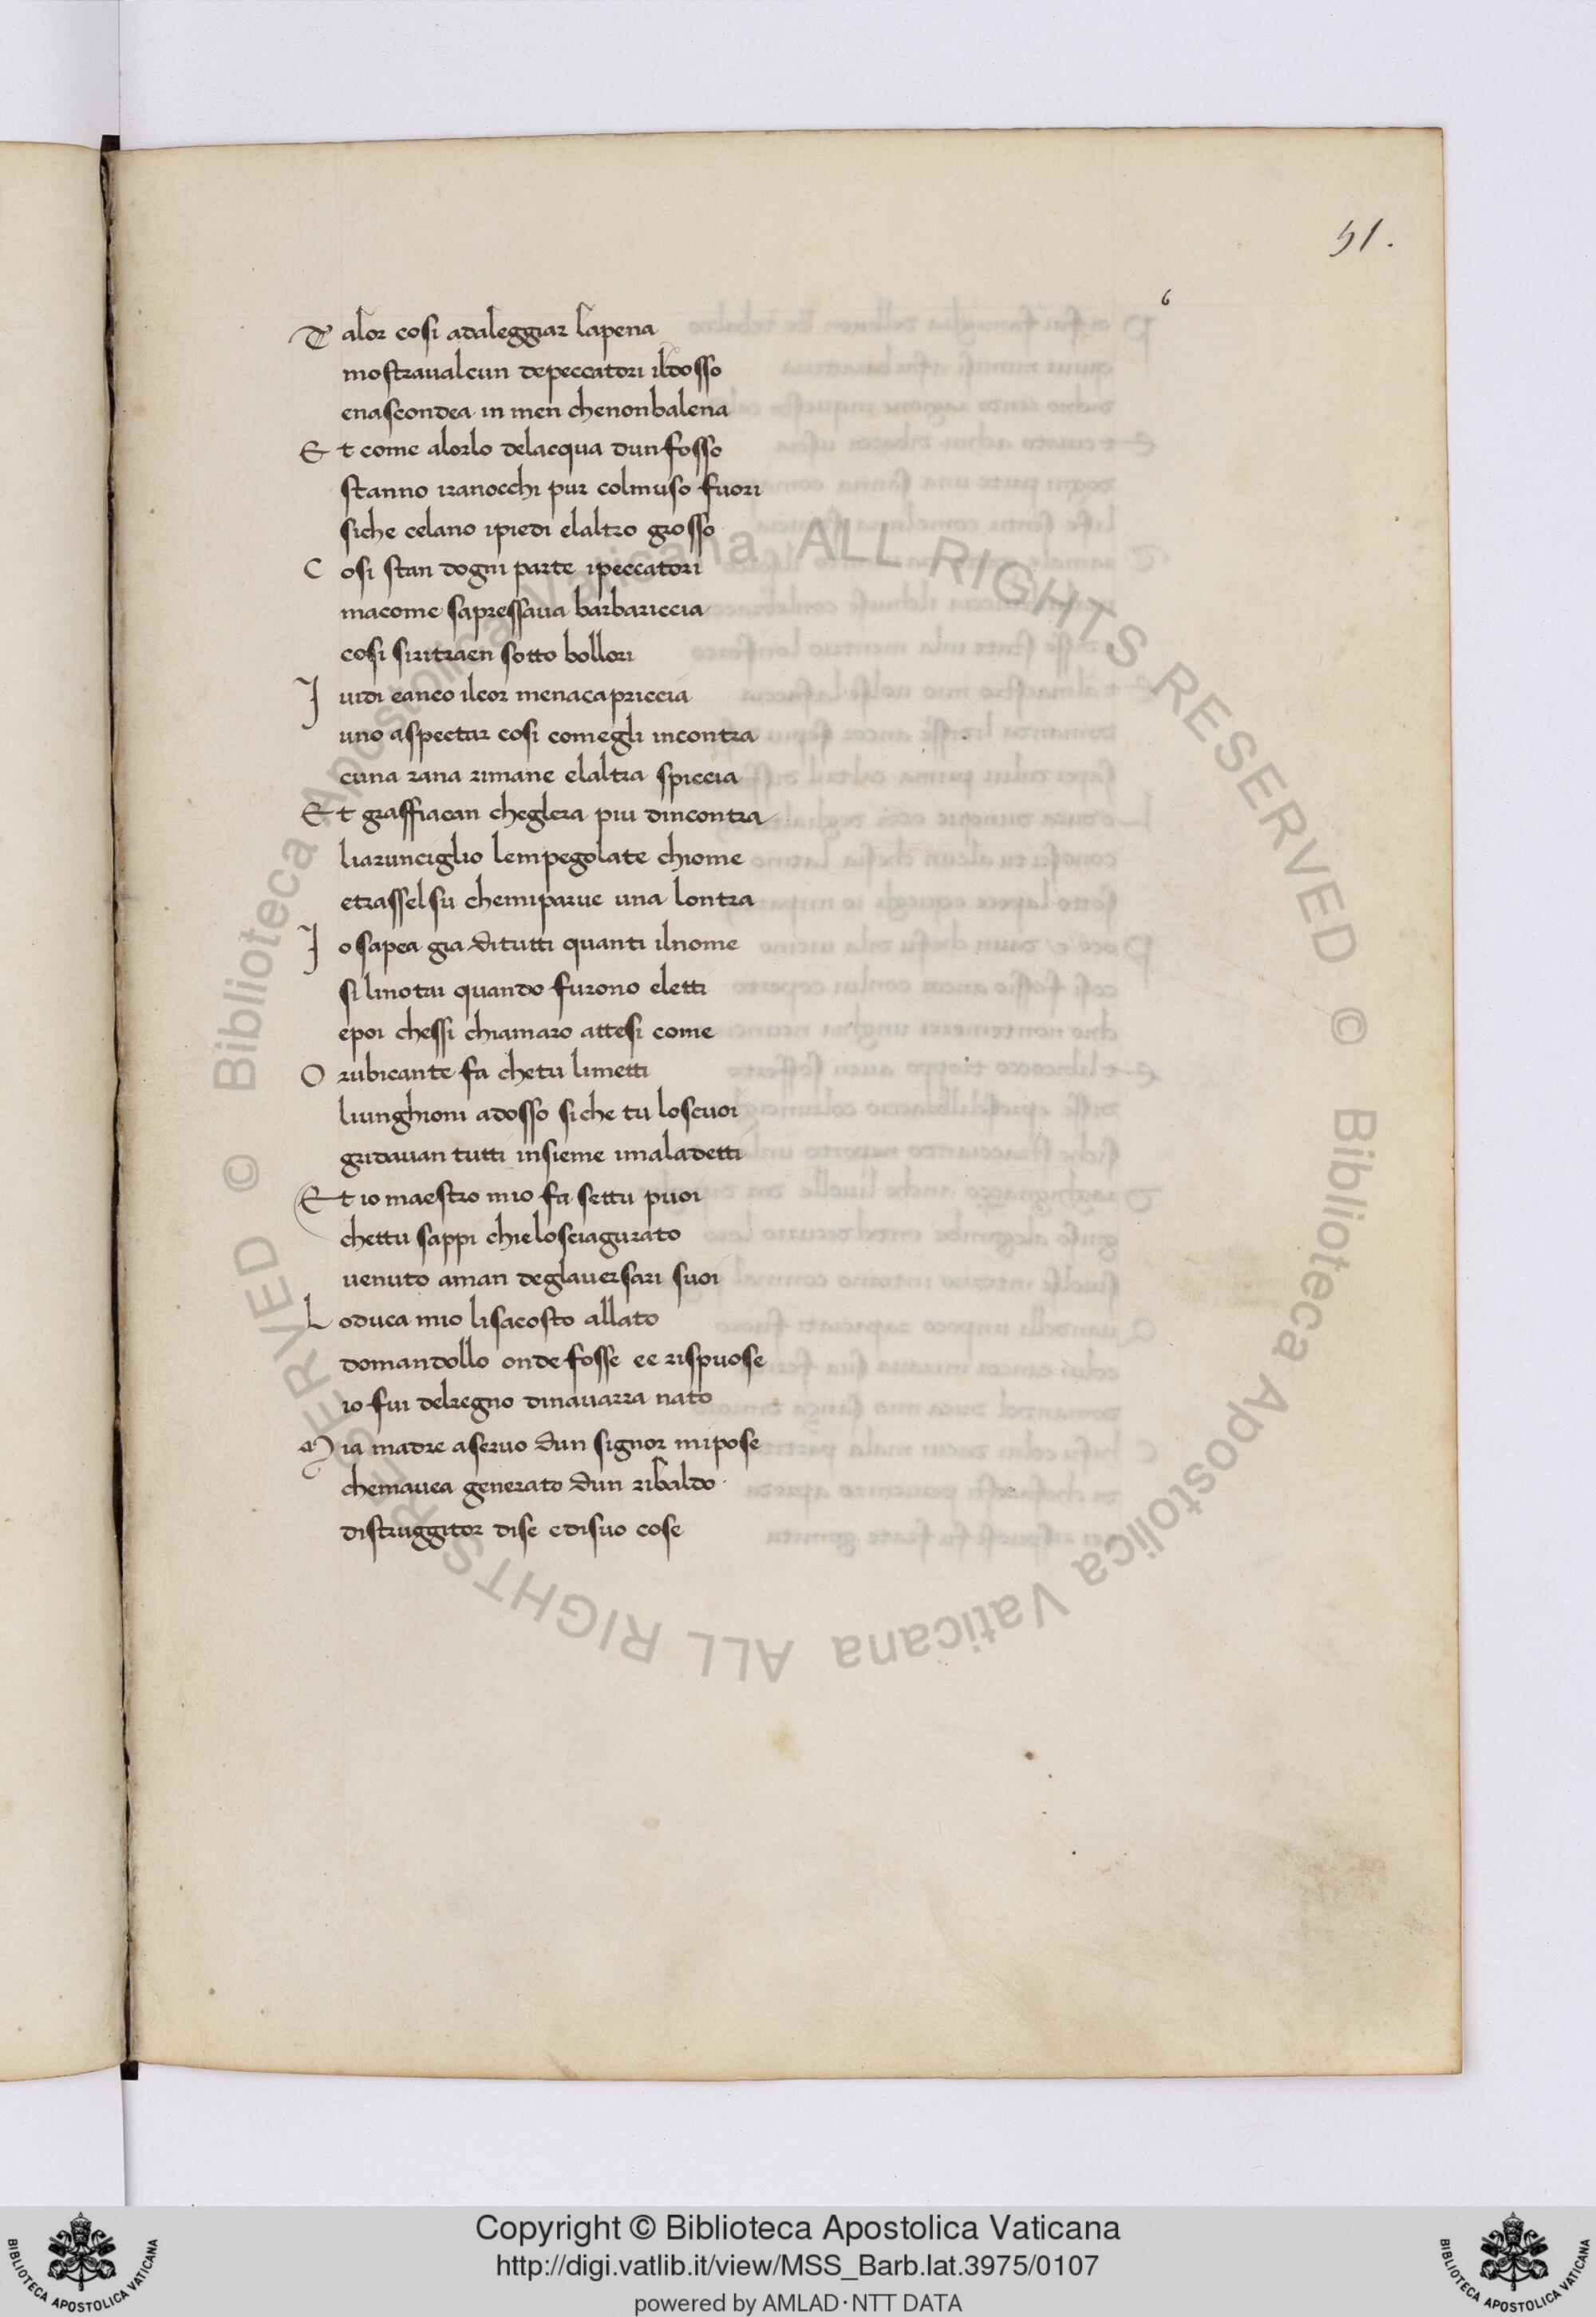 51.
6
T alor cosi adaleggiar lapena
mostraualcun depeccatori ildosso
enascondea in men chenonbalena
E t come alorlo delacqua dunfosso
stanno iranocchi pur colmuso fuori
siche celano ipiedi elaltro grosso
C osi stan dogni parte ipeccatori
macome sapressaua barbariccia
cosi siritraen sotto bollori
I uidi eanco ilcor menacapriccia
uno aspectar cosi comegli incontra
cuna rana rimane elaltra spiccia
E t graffiacan cheglera piu dincontra
liarunciglio lempegolate chiome
etrasselsu chemiparue una lontra
I o sapea gia ditutti quanti ilnome
si linotai quando furono eletti
epoi chessi chiamaro attesi come
O rubicante fa chetu limetti
liunghioni adosso siche tu loscuoi
gridauan tutti insieme imaladetti
E t io maestro mio fa settu puoi
chettu sappi chielosciagurato
uenuto aman deglauersari suoi
L oduca mio lisacosto allato
domandollo ondefosse ee rispuose
io fui delregno dinauarra nato
M ia madre aseruo dun signor mipose
chemauea generato dun ribaldo
distruggitor dise edisuo cose
© Biblioteca Apostolica Vaticana ALL RIGHTS RESERVED © Biblioteca Apostolica Vaticana ALL RIGHTS RESERVED
Copyright © Biblioteca Apostolica Vaticana
http://digi.vatlib.it/view/MSS_Barb.lat.3975/0107
powered by AMLAD·NTT DATA
BIBLIOTECA APOSTOLICA VATICANA
BIBLIOTECA APOSTOLICA VATICANA